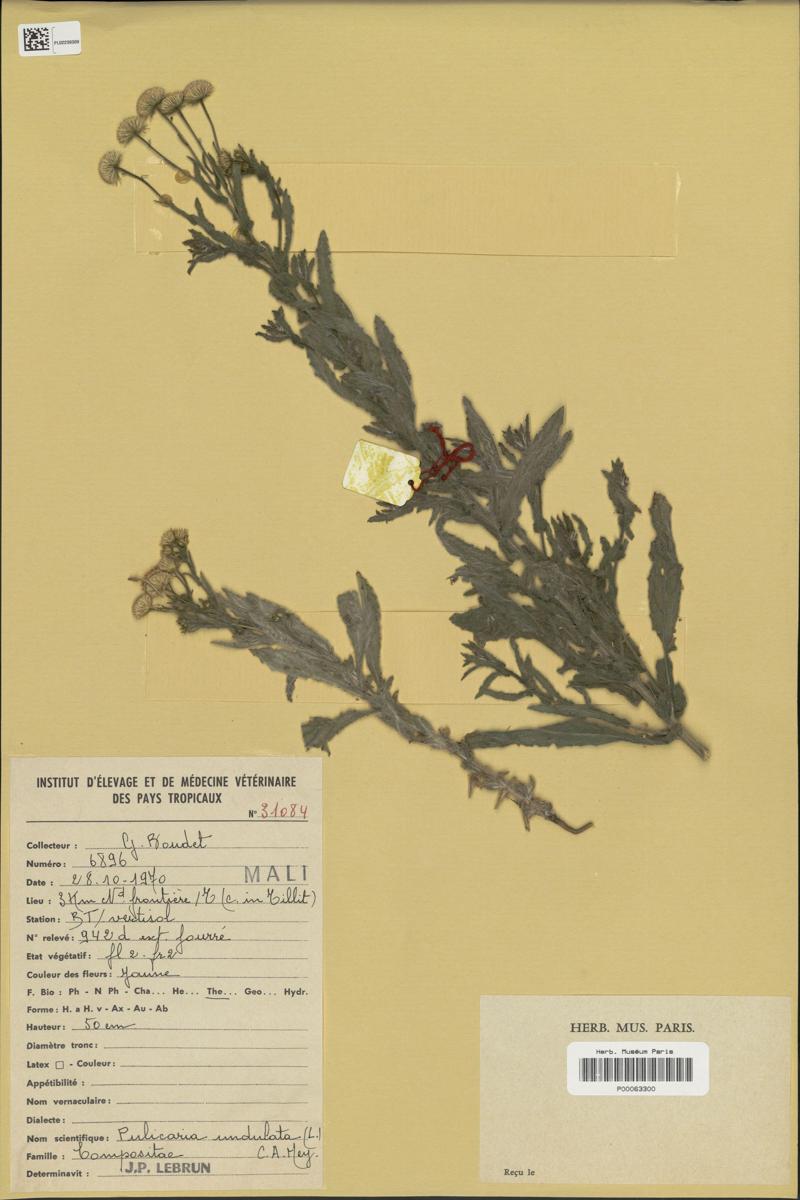 PL02239309
INSTITUT D'ÉLEVAGE ET DE MÉDECINE VÉTÉRINAIRE
DES PAYS TROPICAUX
N° 31084
Collecteur : G. Boudet
Numéro : 6896
MALI
Date : 28.10.1970
Lieu : 3 Km Nd frontière / (c. in Tillit)
Station : BT/ vertisol
N° relevé : 942 d fourré
Etat végétatif : fl 2. fr 2
Couleur des fleurs : Jaune
F. Bio : Ph - N Ph - Cha... He... The... Geo... Hydr.
Forme : H. a H. v - Ax - Au - Ab
Hauteur : 50 cm
Diamètre tronc :
Latex □ - Couleur :
Appétibilité :
Nom vernaculaire :
Dialecte :
Nom scientifique : Pulicaria undulata (L.)
Famille : Compositae C.A. Mey.
Determinavit : J.P. LEBRUN
HERB. MUS. PARIS.
Herb. Muséum Paris
P00063300
Reçu le